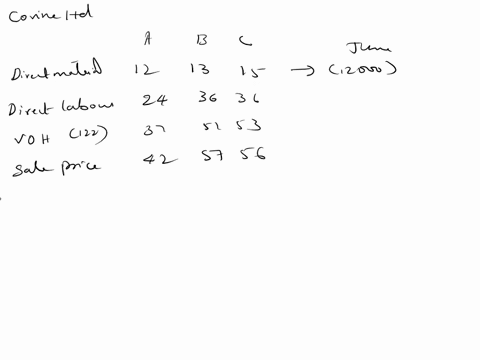 Corine Ltd
A B C
June
Direct material 12 13 15 → (12000)
Direct labour 24 36 36
VOH (122) 37 51 53
Sale price 42 57 56